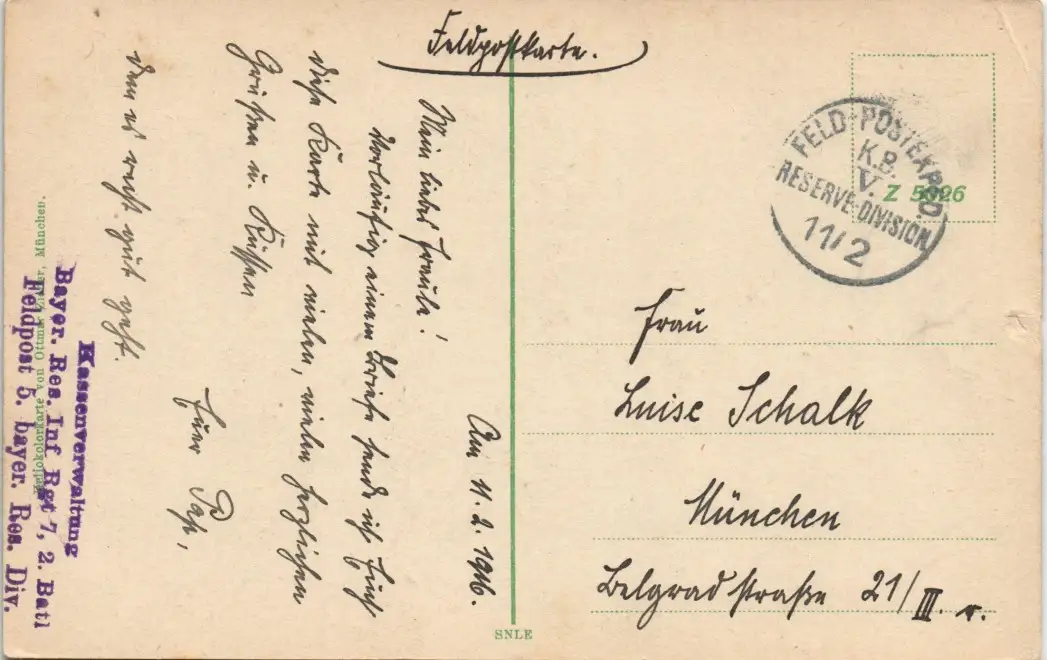 Feldpostkarte.
Am 11.2.1916.
Mein liebes Fraule!
Vorläufig einem Briefe sende ich Euch
diese Karte mit vielen, vielen herzlichen
Grüßen u. Küssen
dem es recht gut geht.
Euer Pap,
Frau
Luise Schalk
München
Belgradstraße 21/III. r.
FELD-POSTEXPED.
K.B.
V.
RESERVE-DIVISION
11/2
Z 5926
Kassenverwaltung
Bayer. Res. Inf Rgt 7, 2. Batl
Feldpost 5. bayer. Res. Div.
von Ottmar
München.
SNLE